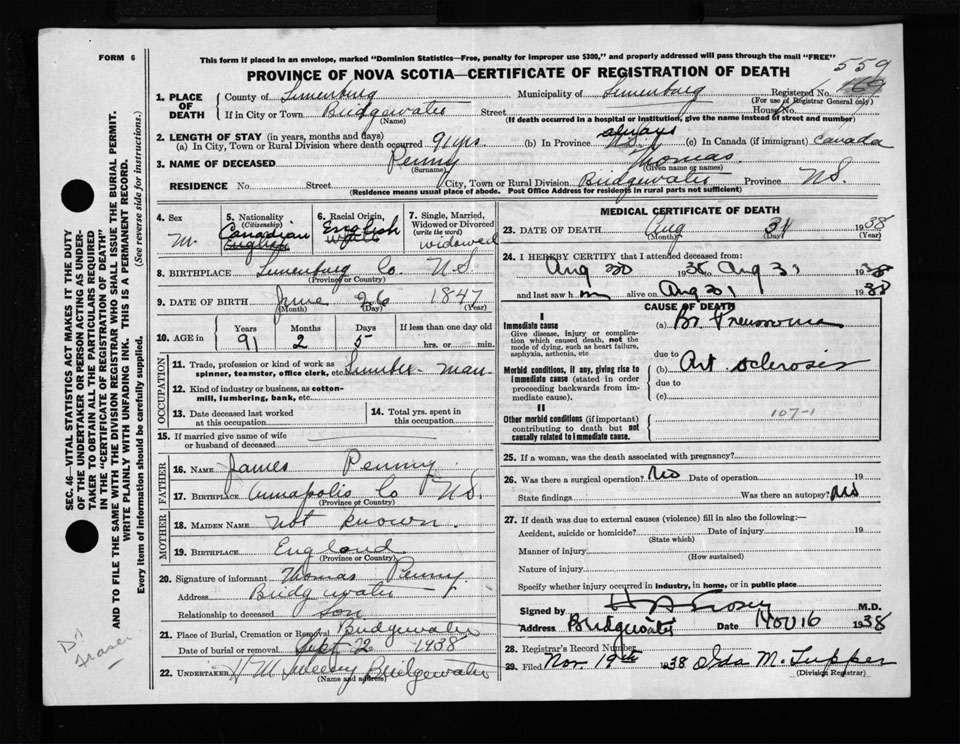 FORM 6
This form if placed in an envelope, marked "Dominion Statistics—Free, penalty for improper use $300," and properly addressed will pass through the mail "FREE"
559
PROVINCE OF NOVA SCOTIA—CERTIFICATE OF REGISTRATION OF DEATH
1. PLACE OF DEATH
County of Lunenburg Municipality of Lunenburg Registered No. 169
(For use of Registrar General only)
If in City or Town Bridgewater Street House No.
(Name) (If death occurred in a hospital or institution, give the name instead of street and number)
2. LENGTH OF STAY (in years, months and days) always
(a) In City, Town or Rural Division where death occurred 91 yrs (b) In Province N.S. (c) In Canada (if immigrant) Canada
3. NAME OF DECEASED Penny Thomas
(Surname) (Given name or names)
RESIDENCE No. Street City, Town or Rural Division Bridgewater Province N.S.
(Residence means usual place of abode. Post Office Address for residents in rural parts not sufficient)
4. Sex M.
5. Nationality (Citizenship) Canadian English
6. Racial Origin, English White
7. Single, Married, Widowed or Divorced (write the word) widowed
8. BIRTHPLACE Lunenburg Co N.S.
(Province or Country)
9. DATE OF BIRTH June 26 1847
(Month) (Day) (Year)
10. AGE in Years Months Days If less than one day old
91 2 5 hrs. or min.
OCCUPATION
11. Trade, profession or kind of work as spinner, teamster, office clerk, etc. Lumber-man
12. Kind of industry or business, as cotton-mill, lumbering, bank, etc.
13. Date deceased last worked at this occupation
14. Total yrs. spent in this occupation
15. If married give name of wife or husband of deceased
FATHER
16. NAME James Penny
17. BIRTHPLACE Annapolis Co N.S.
(Province or Country)
MOTHER
18. MAIDEN NAME Not known.
19. BIRTHPLACE England
(Province or Country)
20. Signature of informant Thomas Penny
Address Bridgewater
Relationship to deceased son
21. Place of Burial, Cremation or Removal Bridgewater
Date of burial or removal Sept 2 1938
22. UNDERTAKER Bridgewater
(Name and address)
MEDICAL CERTIFICATE OF DEATH
23. DATE OF DEATH Aug 31 1938
(Month) (Day) (Year)
24. I HEREBY CERTIFY that I attended deceased from:
Aug 30 1938 to Aug 31 1938
and last saw him alive on Aug 31 1938
CAUSE OF DEATH
I
Immediate cause
Give disease, injury or complication which caused death, not the mode of dying, such as heart failure, asphyxia, asthenia, etc
(a) Br. Pneumonia
due to
Morbid conditions, if any, giving rise to immediate cause (stated in order proceeding backwards from immediate cause).
(b) Art sclerosis
due to
(c)
II
Other morbid conditions (if important) contributing to death but not causally related to immediate cause.
107-1
25. If a woman, was the death associated with pregnancy?
26. Was there a surgical operation? No Date of operation 19
State findings Was there an autopsy? No
27. If death was due to external causes (violence) fill in also the following:—
Accident, suicide or homicide? Date of injury 19
(State which)
Manner of injury
(How sustained)
Nature of injury
Specify whether injury occurred in industry, in home, or in public place
Signed by M.D.
Address Bridgewater Date Nov 16 1938
28. Registrar's Record Number
29. Filed Nov. 19th 1938 Ida M. Tupper
(Division Registrar)
SEC. 46—VITAL STATISTICS ACT MAKES IT THE DUTY
OF THE UNDERTAKER OR PERSON ACTING AS UNDER-
TAKER TO OBTAIN ALL THE PARTICULARS REQUIRED
IN THE "CERTIFICATE OF REGISTRATION OF DEATH"
AND TO FILE THE SAME WITH THE DIVISION REGISTRAR WHO SHALL ISSUE THE BURIAL PERMIT.
WRITE PLAINLY WITH UNFADING INK. THIS IS A PERMANENT RECORD.
Every item of information should be carefully supplied. (See reverse side for instructions.)
Dr Fraser